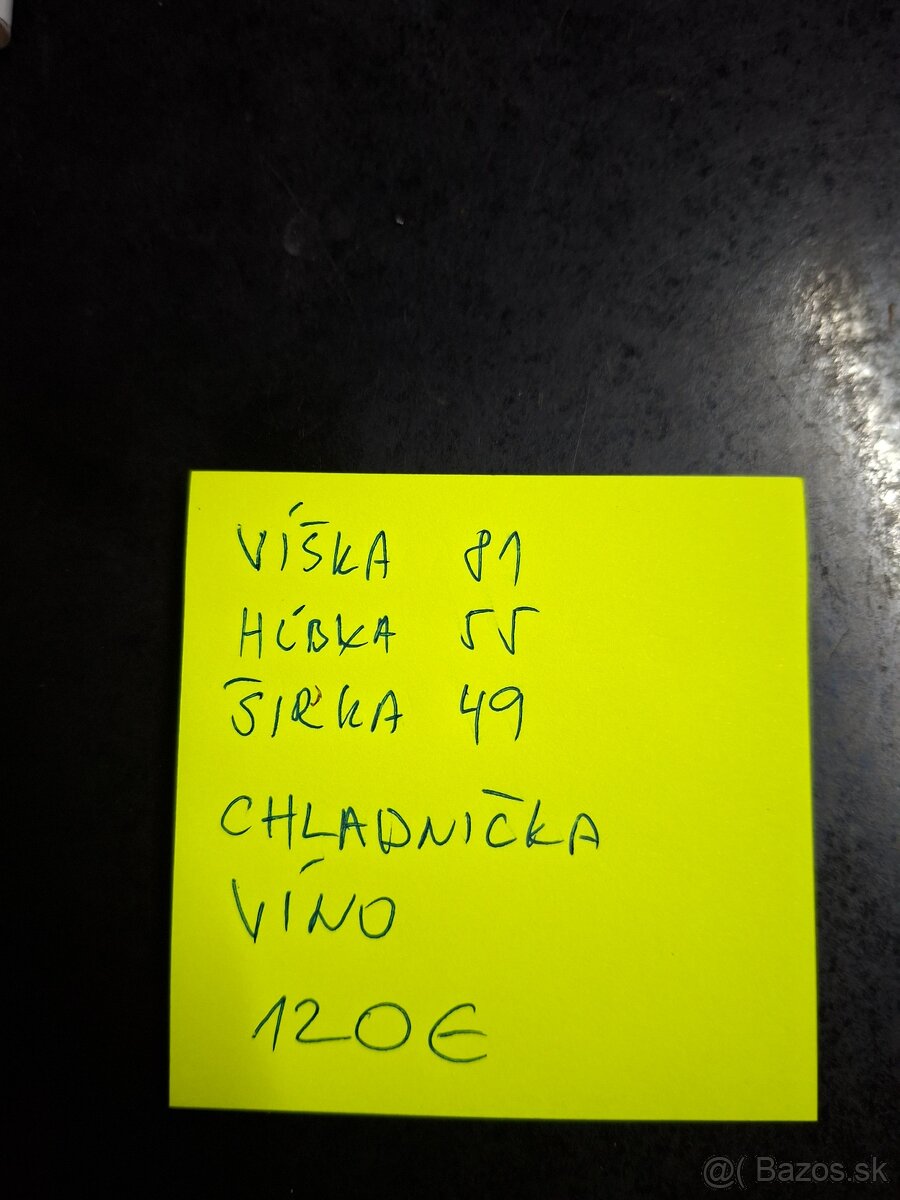 VÍŠKA 81
HĹBKA 55
ŠIRKA 49
CHLADNIČKA
VÍNO
120€
@( Bazos.sk